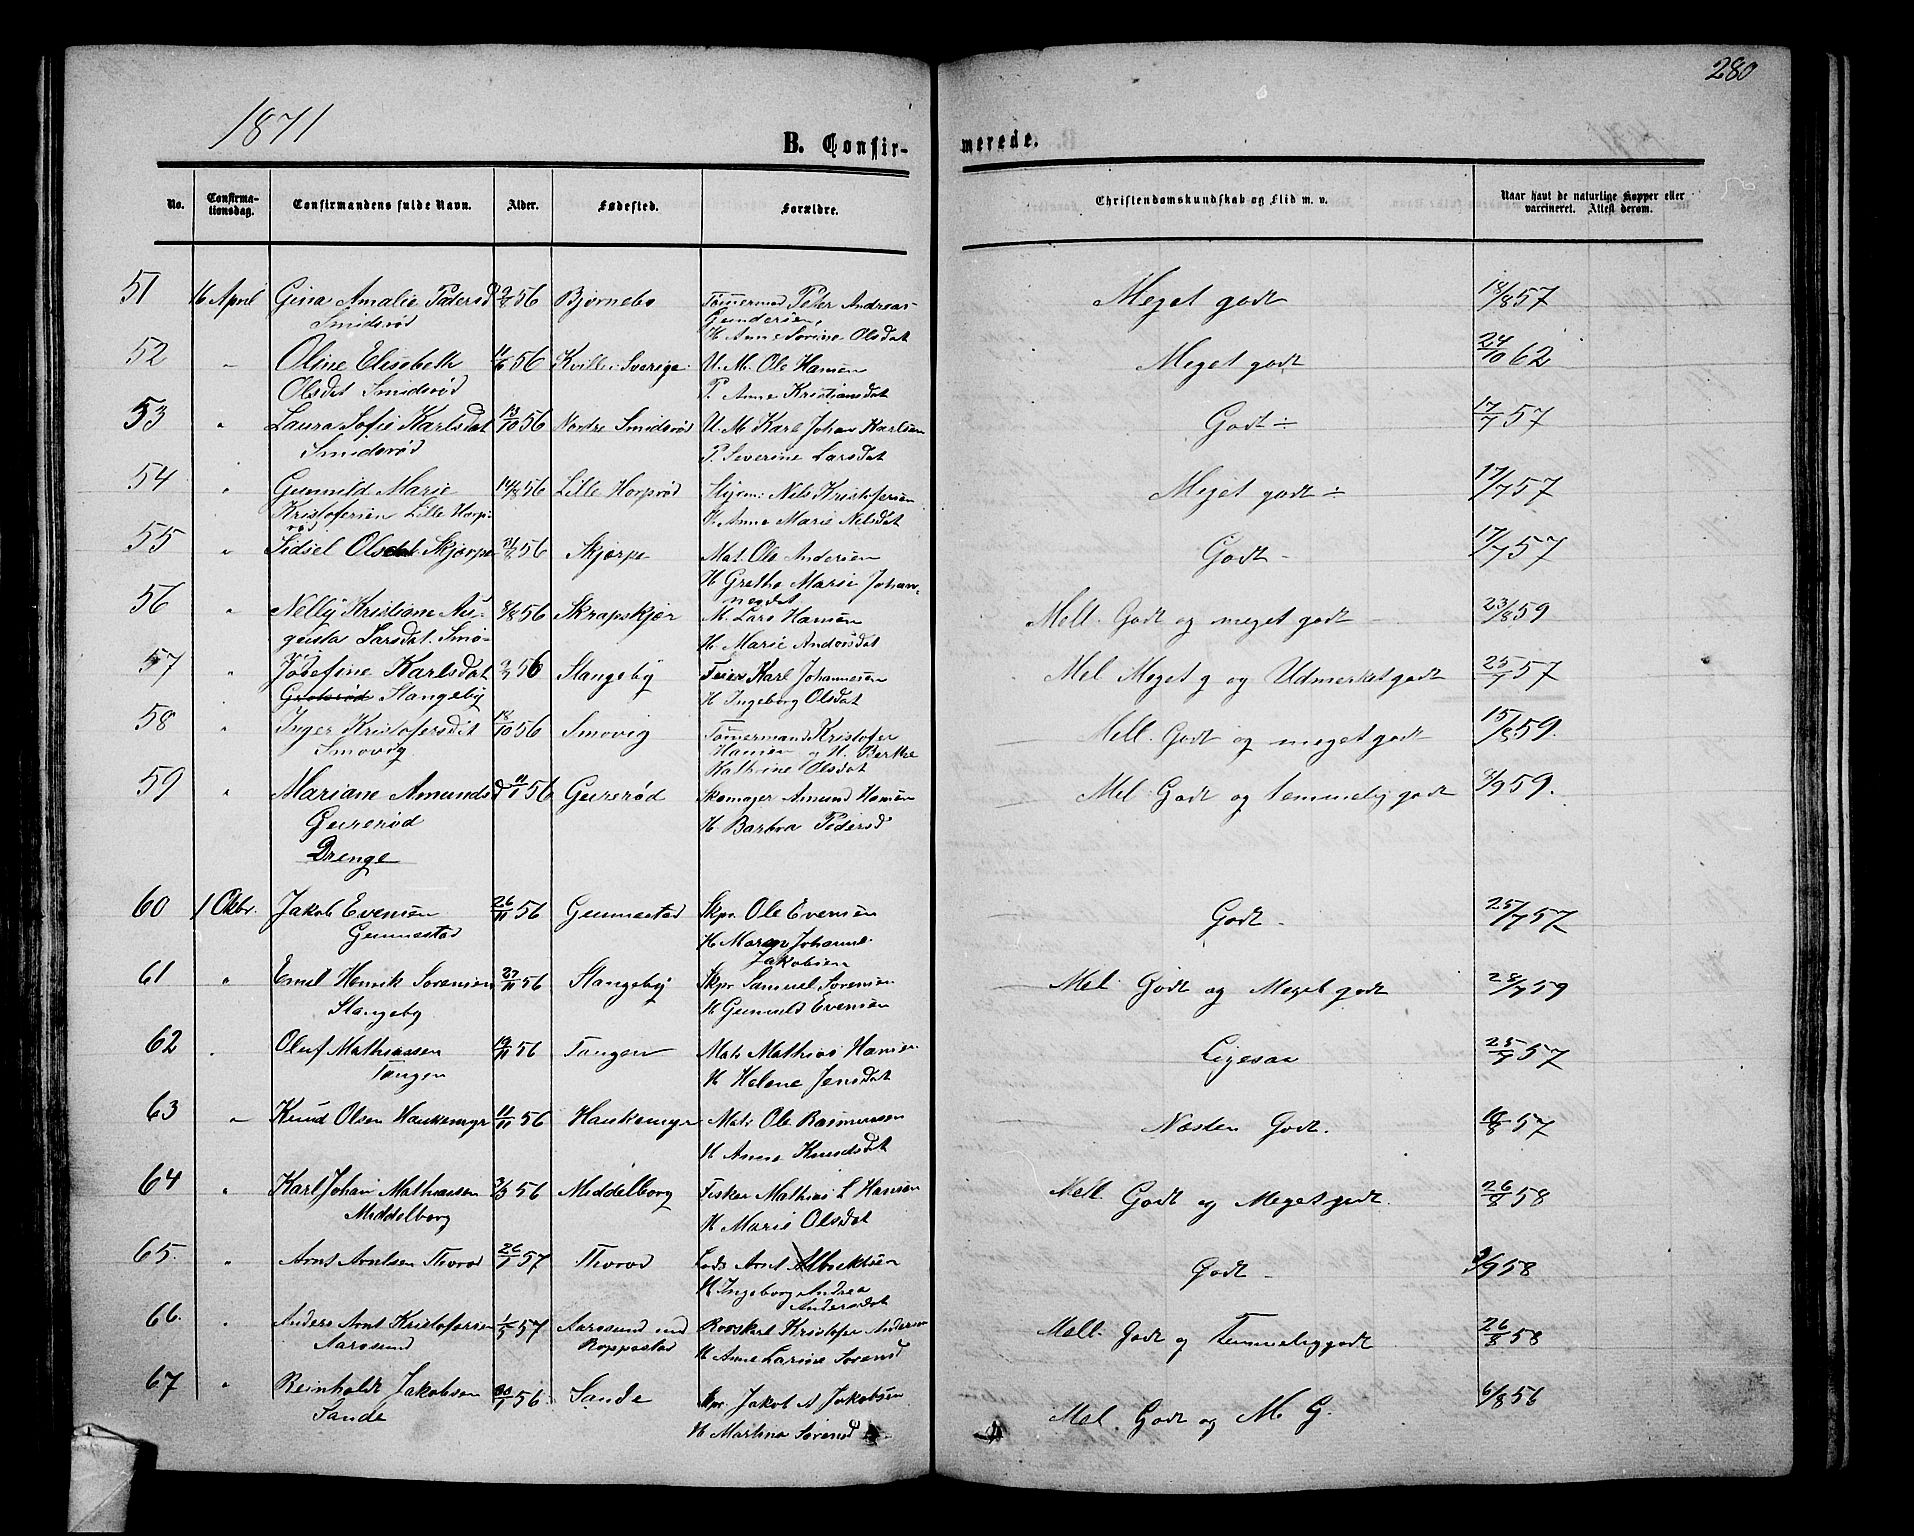 280
1871
B. Confirmerede.
No. Confirmationsdag. Confirmandens fulde Navn. Alder. Fødested. Forældre. Christendomskundskab og Flid m. v. Naar havt de naturlige Kopper eller vaccineret. Attest derom.
51 16 April Gina Amalie Pedersd 56 Bjørnebo Tømermd Peter Andreas Meget godt 18/8 57
Smidsrød Gundersen,
H Anne Sorine Olsdat
52 " Oline Elisebeth 56 Kville i Sverige U. M. Ole Hansen Meget godt 24/10 62
Olsdat Smidsrød P. Anne Kristiansdat
53 " Laura Sofie Karlsdat 13/10 56 Nordre Smidsrød U. M Karl Johan Karlsen Godt ÷ 17/7 57
Smidsrød P. Severine Larsdat
54 " Gunnild Marie 14/8 56 Lille Horprød Styrm: Nils Kristofersen Meget godt ÷ 17/7 57
Kristofersen Lille Horp- H. Anne Marie Nelsdat
rød
55 " Sidsel Olsdat Skjærpe 56 Skjærpe Mat. Ole Andersen Godt - 17/7 57
H Grethe Marie Johan-
nesdat
56 " Nelly Kristiane Au- 8/8 56 Skrapskjær M. Lars Hansen Mell. Godt og meget godt 23/8 59
gusta Larsdat. Smø- H Marie Andersdat
57 " Josefine Karlsdat 56 Stangeby Feier Karl Johannesen Mel Meget g og Udmerket godt 25/7 57
Stangeby H Ingeborg Olsdat
58 " Inger Kristofersdat 18/10 56 Smovig Tømermand Kristofer Mell. Godt og meget godt 15/8 59.
Smovig Hansen og H. Berthe
Kathrine Olsdat
59 " Mariane Amundsd 11/11 56 Gurerød Skomager Amund Hansen Mel Godt og temmelig godt 59.
Gurerød H. Barbra Pedersd
Drenge
60 1 Oktbr. Jakob Evensen 26/11 56 Gunnestad Skpr Ole Evensen Godt - 25/7 57
Gunnestad H Maren Johanne
Jakobsen
61 " Emil Henrik Sørensen 27/11 56 Stangeby Skpr Samuel Sørensen Mel. Godt og Meget godt 28/7 59
Stangeby H Gunnild Evensen
62 " Oluf Mathiassen 19/11 56 Tangen Mats Mathias Hansen Ligesaa 25/7 57
Tangen H Helene Jensdat
63 " Knud Olsen Haukemyr 11/11 56 Haukemyr Mats Ole Rasmussen Næsten Godt. 57
H Anne Knudsdat
64 " Karl Johan Mathiasen 56 Middelborg Fisker Mathias L Hansen Mell. Godt og Meget godt. 26/8 58
Middelborg H Marie Olsdat
65. " Arnt Arntsen 26/1 57 Lods Arnt Albrektsen Godt - 58
H Ingeborg Andrea
Andersdat
66. " Anders Arnt Kristofersen 1/5 57 Aarøsund ind Rooskarl Kristofer Andersen Mell. Godt og Temmelig godt 26/8 58
Aarøsund Roppestad H Anne Larine Sørensd
67 " Reinholdt Jakobsen 56. Sande Skpr Jakob A Jakobsen Mel. Godt og M G. 6/8 56
Sande H Martina Sørensd